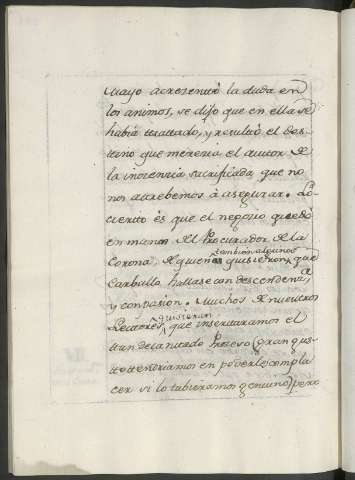 Mayo acrecentò la duda en
los animos, se dijo que en ella se
había tratado, y resultò el des-
tino que merecia el autor de
la inocencia sacrificada, que no
nos atrebemos à asegurar. Lo
cierto és que el negocio quedò
en manos del Procurador de la
Corona, de quien
tambien algunos
quisieron, que
Carballo hallase condescendencia
y compasion. Muchos de nuestros
Lectores
quisieran
que insertaramos el
tan decantado Proceso (gran gus-
to tendriamos en poderle compla
cer si lo tubieramos genuino) pero